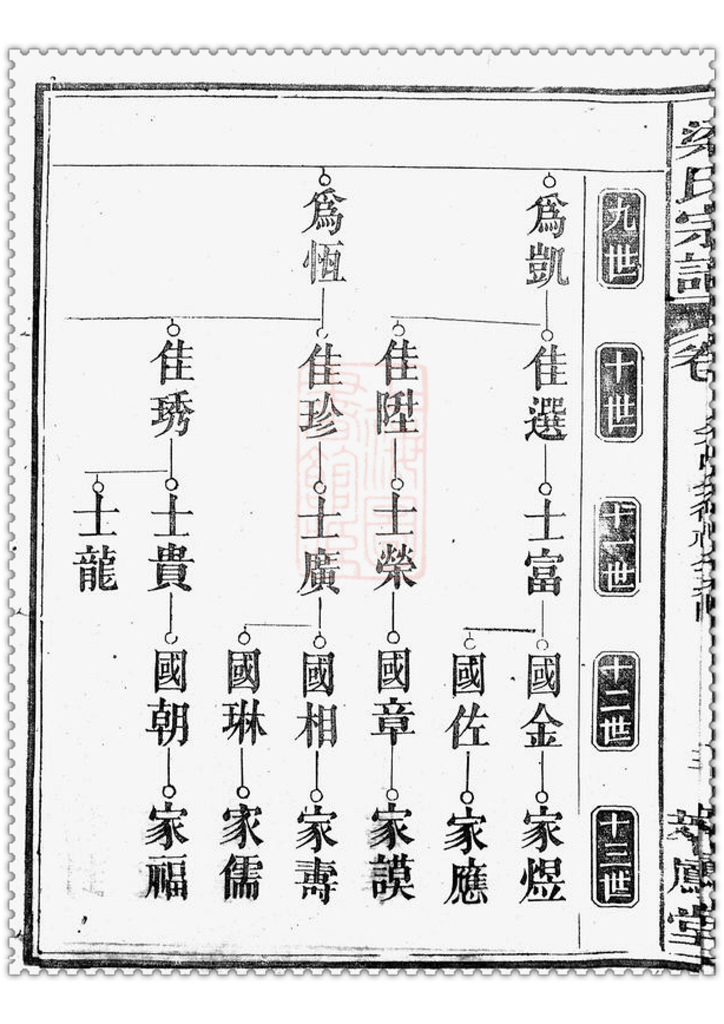 九世
十世
十一世
十二世
十三世
為凱
佳選
士富
國金
家煜
國佐
家應
佳陞
士榮
國章
家謨
為恆
佳珍
士廣
國相
家壽
國琳
家儒
佳琇
士貴
國朝
家福
士龍